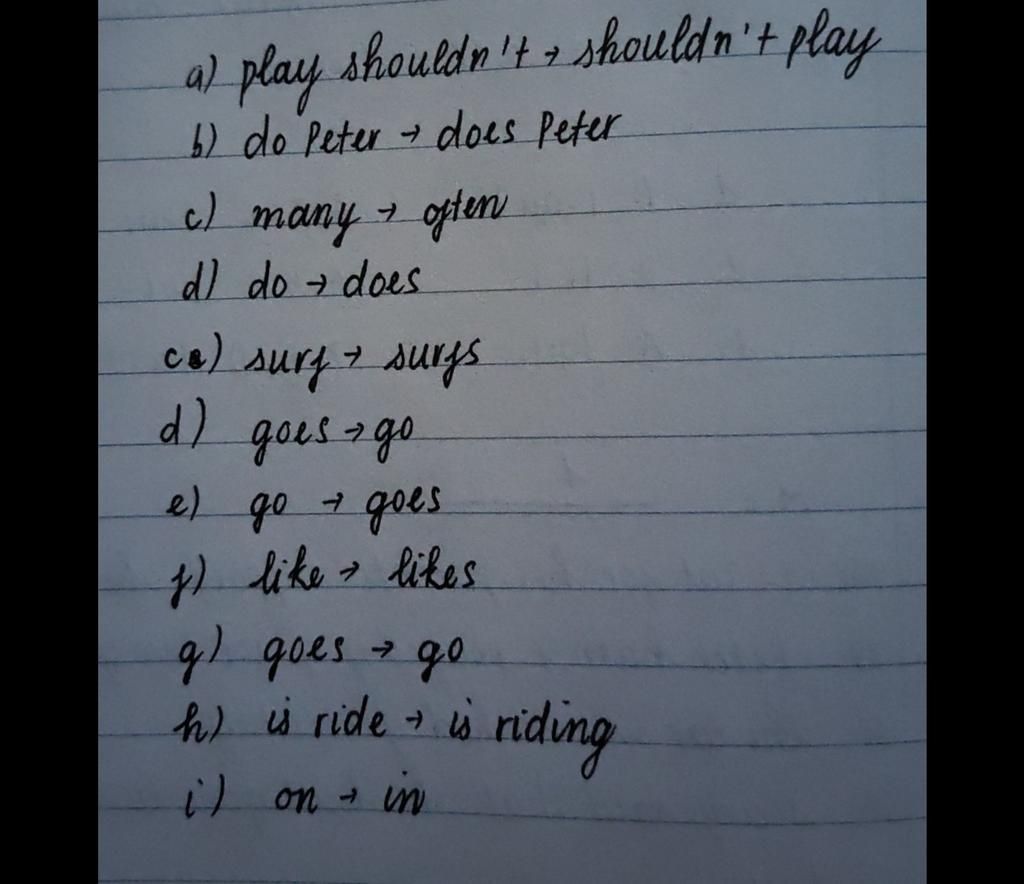 a) play shouldn't → shouldn't play
b) do Peter → does Peter
c) many → often
d) do → does
ca) surf → surfs
d) goes → go
e) go → goes
f) like → likes
g) goes → go
h) is ride → is riding
i) on → in